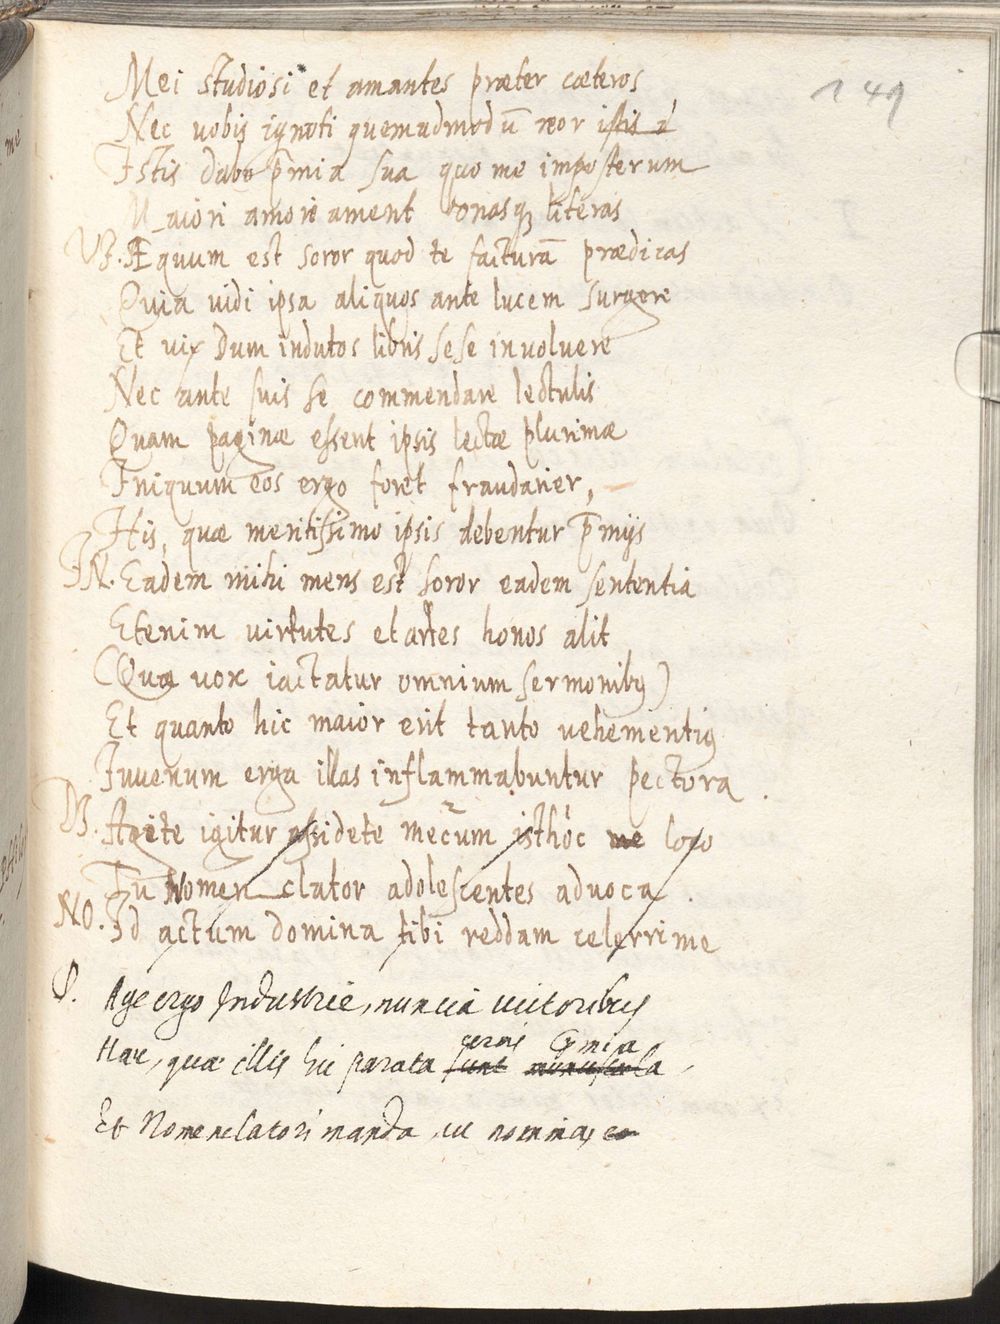 149
Mei studiosi et amantes præter cæteros
Nec vobis ignoti quemadmodū reor istis
Istis dabo p̄mia sua quo me imposterum
Maiori amore ament bonasq; literas
VI. Æquum est soror quod te facturā prædicas
Quia vidi ipsa aliquos ante lucem surgere
Et vix dum indutos libris sese involvere
Nec ante suis se commendare lectulis
Quam paginæ essent ipsis lectæ plurimæ
Iniquum eos ergo foret fraudarier,
His, quæ meritissimo ipsis debentur p̄mijs
IN. Eadem mihi mens est soror eadem sententia
Etenim virtutes et artes honos alit
(Quæ vox iactatur omnium sermonibus)
Et quanto hic maior erit tanto vehementius
Iuvenum erga illas inflammabuntur pectora.
Agite igitur assidete mecum isthôc me loco
Tu Nomenclator adolescentes advoca.
NO. Id actum domina tibi reddam celerrime
Age ergo Industrie, nuncia victoribus
cernis p̄mia
Hæc, quæ illis hic parata sunt munuscula,
Et Nomenclatori manda, ut nomina eo